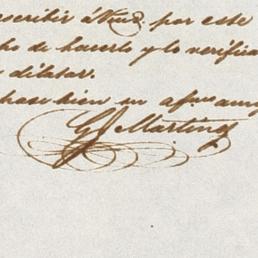 escribir á Vmd. por este
ho de hacerlo y lo verifica
dilatar.
hase bien su affmo amig
G Martinez